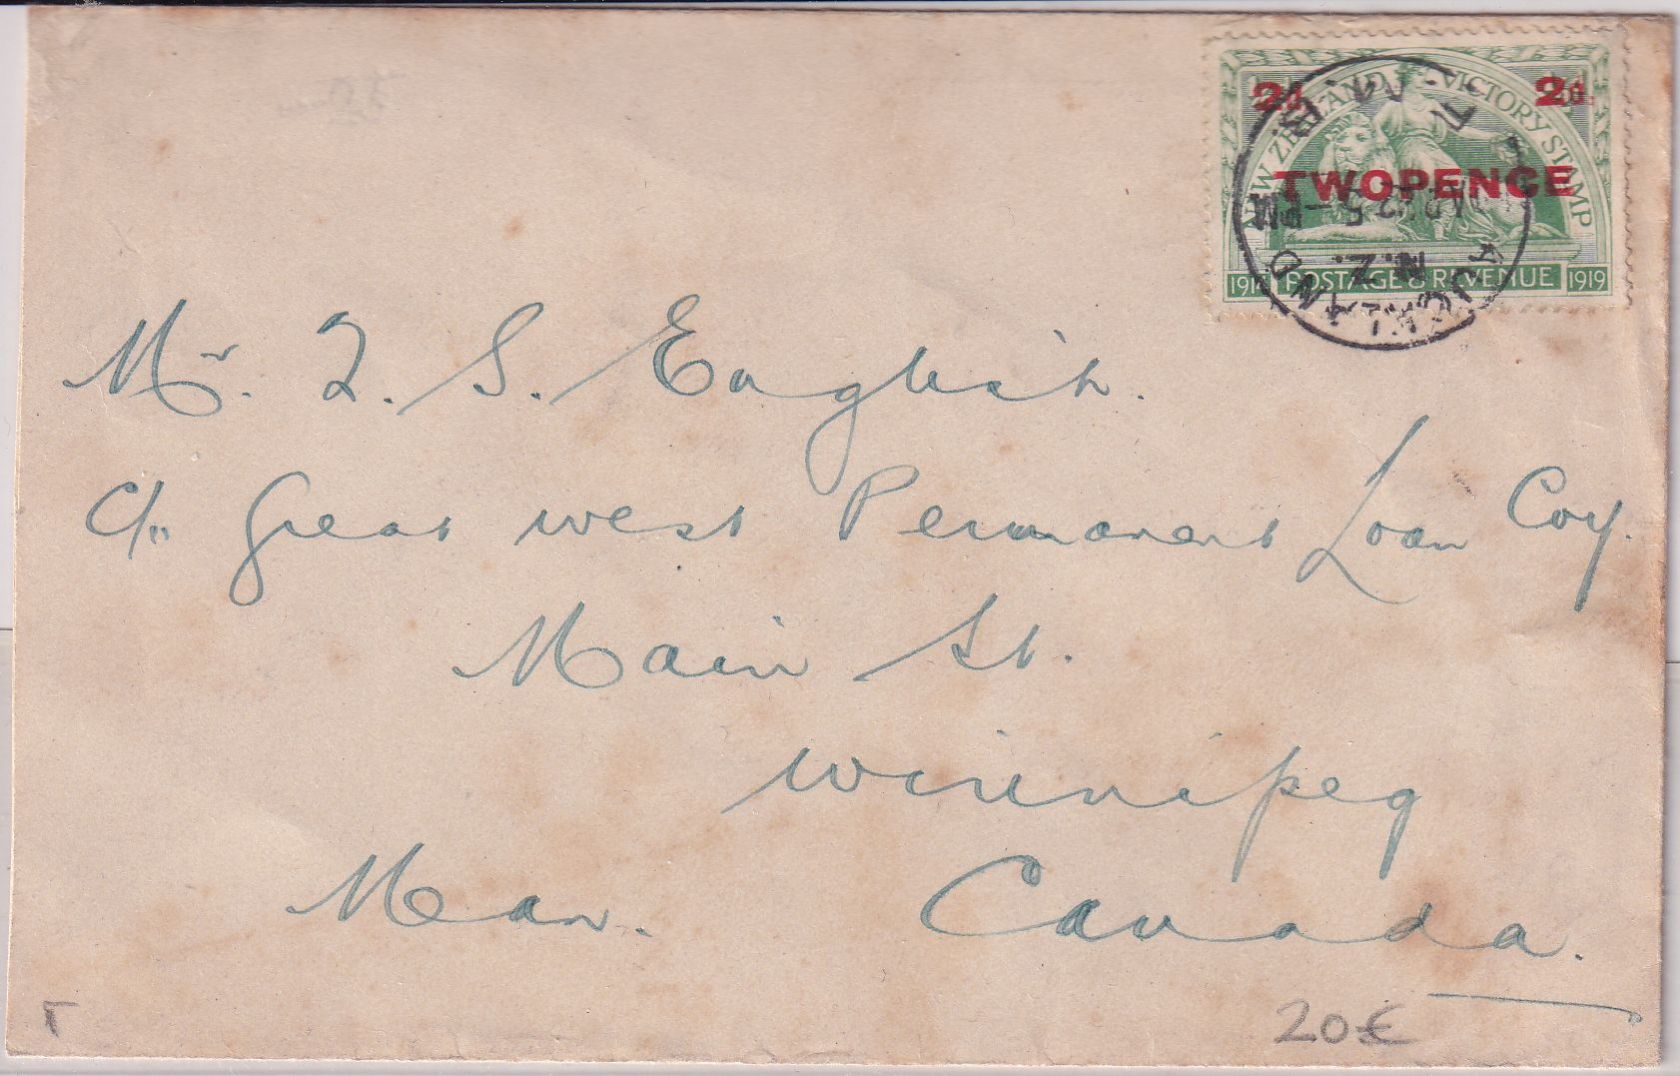 NEW ZEALAND VICTORY STAMP
2d. 2d.
TWOPENCE
1914 POSTAGE & REVENUE 1919
AUCKLAND
N.Z.
5-PM
Mr. T. S. English.
C/o Great West Permanent Loan Coy.
Main St.
Winnipeg
Man. Canada.
20€